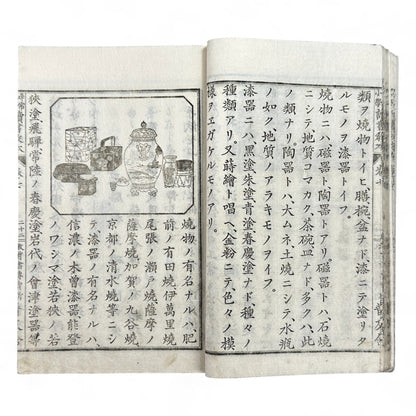 類ヲ燒物トイヒ膳椀盆ナド、漆ニテ塗リタ
ルモノヲ漆器トイフ。
燒物ニハ磁器ト陶器トアリ。磁器トハ石燒
ニシテ地質コマカク、茶碗皿ナド多クハ、此
ノ類ナリ。陶器トハ大ムネ土燒ニシテ水瓶
ノ如ク地質ノアラキモノヲイフ。
漆器ニハ黑塗朱塗青塗春慶塗ナド、種々ノ
種類アリ。又蒔繪ト唱ヘ、金粉ニテ色々ノ模
樣ヲエガケルモノアリ。
燒物ノ有名ナルハ、肥
前ノ有田燒伊萬里燒
尾張ノ瀨戸燒薩摩ノ
薩摩燒加賀ノ九谷燒
京都ノ清水燒等ニシ
テ漆器ノ有名ナルハ、
信濃ノ木曾漆器能登
ノワシマ塗若狹ノ若
狹塗飛驒常陸ノ春慶塗岩代ノ會津塗漆器等